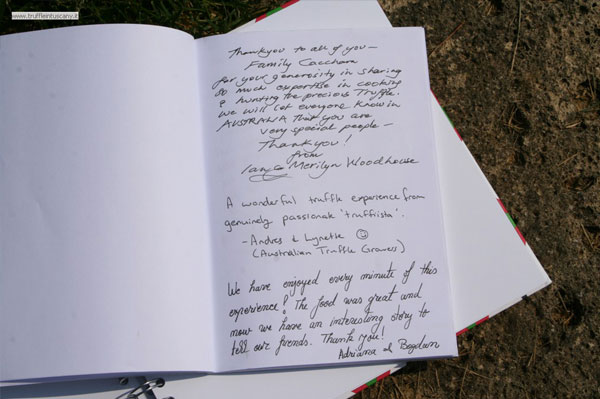 www.truffleintuscany.it
Thankyou to all of you –
Family Cacchiara
for your generosity in sharing
so much expertise in cooking
& hunting the precious Truffle.
We will let everyone know in
AUSTRALIA that you are
very special people –
Thankyou!
from
Ian & Merilyn Woodhouse
A wonderful truffle experience from
genuinely passionate 'truffiista'.
- Andres & Lynette ☺
(Australian Truffle Growers)
We have enjoyed every minute of this
experience! The food was great and
now we have an interesting story to
tell our friends. Thank you!
Adriana & Bogdan